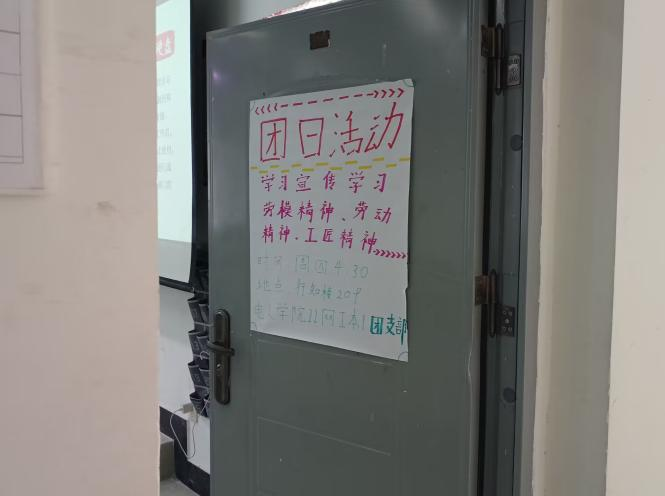 团日活动
学习宣传学习
劳模精神、劳动
精神、工匠精神
时间:周四4:30
地点:行知楼209
学院22网工本1团支部